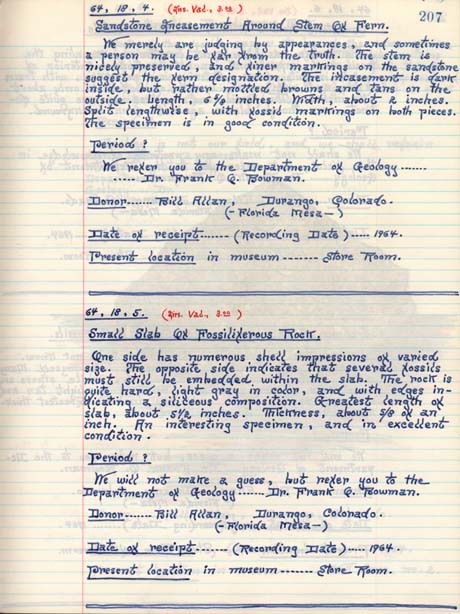 207
64, 18, 4. (Ins. Val., 3.00)
Sandstone Incasement Around Stem Of Fern.
We merely are judging by appearances, and sometimes
a person may be far from the truth. The stem is
nicely preserved, and finer markings on the sandstone
suggest the fern designation. The incasement is dark
inside, but rather mottled browns and tans on the
outside. Length, 6 1/2 inches. Width, about 2 inches.
Split lengthwise, with fossil markings on both pieces.
The specimen is in good condition.
Period ?
We refer you to the Department of Geology ------
----- Dr. Frank Q. Bowman.
Donor ----- Bill Allan, Durango, Colorado.
(-Florida Mesa-)
Date of receipt ------ (Recording Date) ---- 1964.
Present location in museum ------- Store Room.
64, 18, 5. (Ins. Val., 3.00)
Small Slab Of Fossiliferous Rock.
One side has numerous shell impressions of varied
size. The opposite side indicates that several fossils
must still be embedded within the slab. The rock is
quite hard, light gray in color, and with edges in-
dicating a siliceous composition. Greatest length of
slab, about 5 1/2 inches. Thickness, about 5/8 of an
inch. An interesting specimen, and in excellent
condition.
Period ?
We will not make a guess, but refer you to the
Department of Geology ------ Dr. Frank Q. Bowman.
Donor ----- Bill Allan, Durango, Colorado.
(-Florida Mesa-)
Date of receipt ------ (Recording Date) ---- 1964.
Present location in museum ------- Store Room.